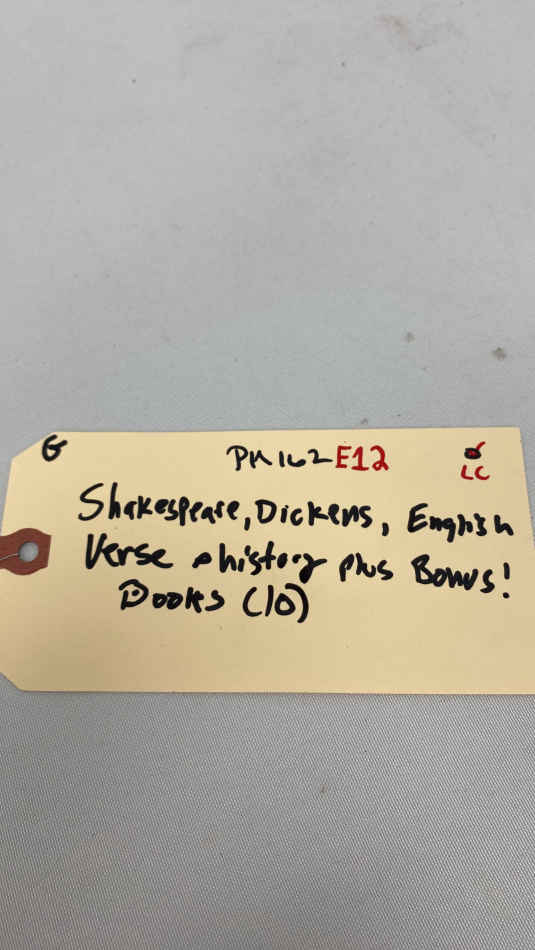 G PM162 E12
LC
Shakespeare, Dickens, English
Verse & history plus Bonus!
Books (10)